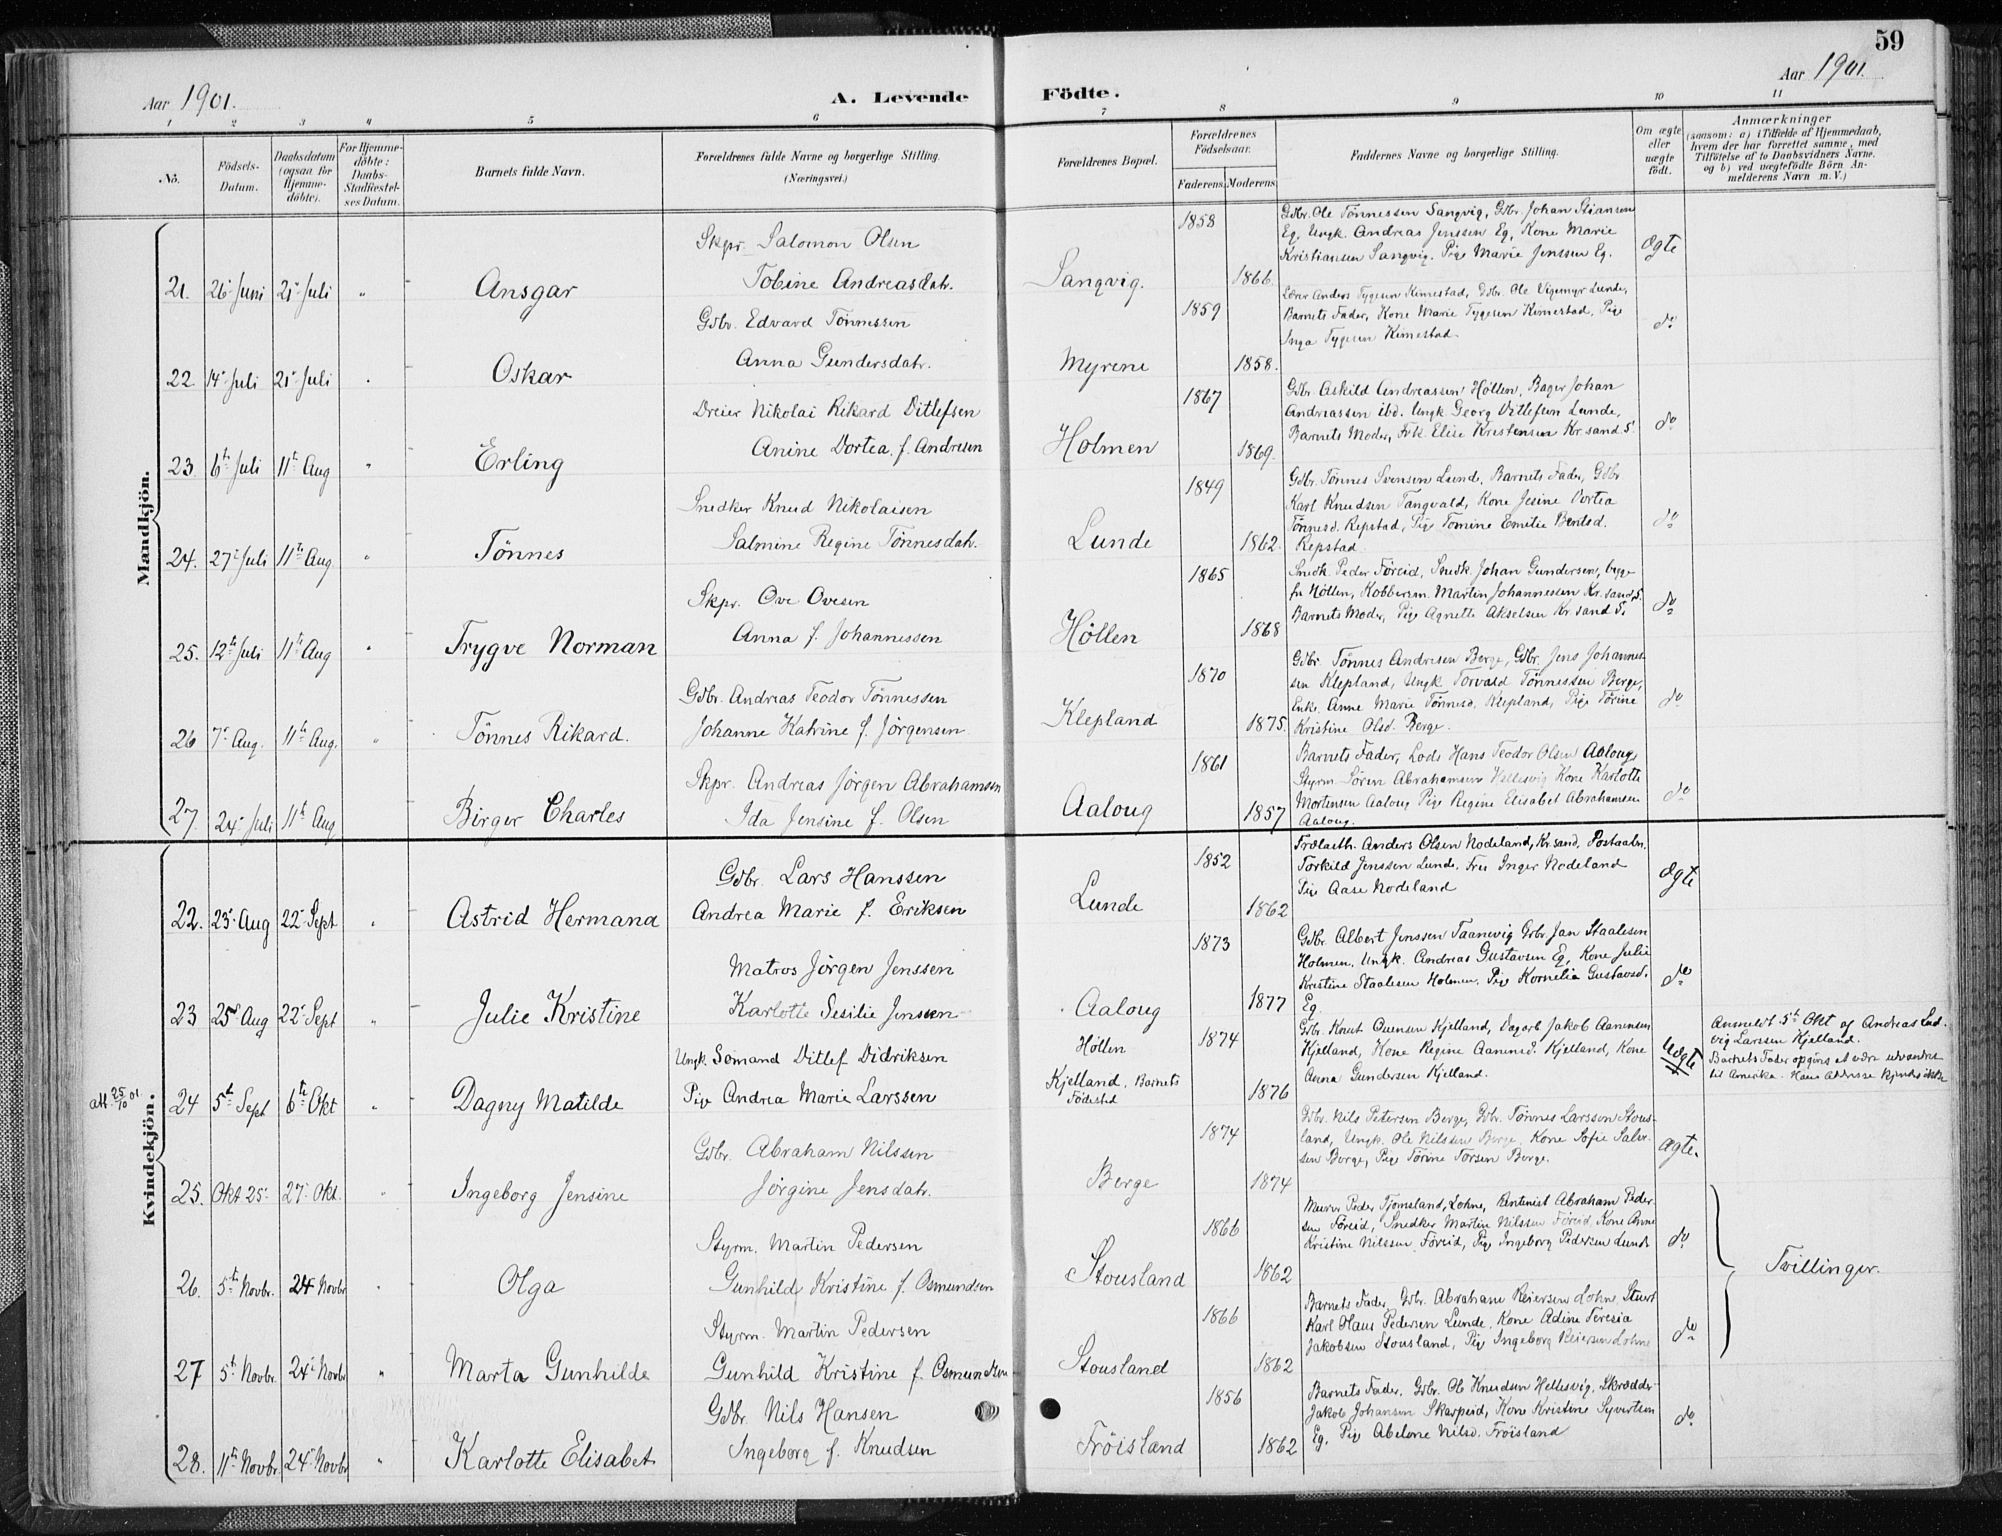 59
Aar 1901.
A. Levende Födte.
Aar 1901.
1 2 3 4 5 6 7 8 9 10 11
No.
Födsels-Datum.
Daabsdatum (ogsaa for Hjemme-döbte).
For Hjemme-döbte: Daabs-Stadfæstel-ses Datum.
Barnets fulde Navn.
Forældrenes fulde Navne og borgerlige Stilling.
(Næringsvei.)
Forældrenes Bopæl.
Forældrenes Födselsaar.
Faderens. Moderens.
Faddernes Navne og borgerlige Stilling.
Om ægte eller uægte födt.
Anmærkninger
(saasom: a) i Tilfælde af Hjemmedaab,
hvem der har forrettet samme, med
Tilföielse af to Daabsvidners Navne,
og b) ved uægtefödte Börn An-
melderens Navn m. V.)
Mandkjön.
21. 26 Juni 21 Juli " Ansgar
Skpr. Salomon Olsen
Tobine Andreasdatr.
Sangvig. 1858 1866.
Gdbr. Ole Tönnessen Sangvig, Gdbr. Johan Stiansen
Eg, Ungk. Andreas Jenssen Eg, Kone Marie
Kristiansen Sangvig. Pige Marie Jenssen Eg.
Ægte
22. 14 Juli 21 Juli " Oskar
Gdbr. Edvard Tönnessen
Anna Gundersdatr.
Myrene 1859 1858.
Lærer Anders Tygesen Kimestad, Gdbr. Ole Vigemyr Lunde,
Barnets Fader, Kone Marie Tygesen Kimestad, Pige
Inga Tygesen Kimestad.
do
23 6te Juli 11te Aug " Erling
Dreier Nikolai Rikard Ditlefsen
Anine Dortea f. Andresen
Holmen 1867 1869.
Gdbr. Askild Andreassen Höllen, Bager Johan
Andreassen ibd. Ungk. Georg Ditlefsen Lunde,
Barnets Moder, Frk. Elise Kristensen Kr.sand S.
do
24. 27 Juli 11te Aug " Tönnes
Snedker Knud Nikolaisen
Salmine Regine Tönnesdatr.
Lunde 1849 1862.
Gdbr. Tönnes Svensen Lunde, Barnets Fader, Gdbr
Karl Knudsen Tangvald, Kone Jesine Dortea
Tönnesd. Repstad, Pige Tomine Emelie Bentsd.
Repstad.
do
25. 12te Juli 11te Aug " Trygve Norman
Skpr. Ove Ovesen
Anna f. Johannessen
Höllen 1865 1868
Snedk. Peder Föreid, Snedk. Johan Gundersen, begge
fra Höllen, Kobberm. Martin Johannessen Kr.sand S.
Barnets Moder, Pige Agnette Akselsen Kr.sand S.
do
26 7de Aug. 11te Aug. " Tönnes Rikard.
Gdbr. Andreas Teodor Tönnessen
Johanne Katrine f. Jörgensen
Klepland 1870 1875.
Gdbr. Tönnes Andresen Berge, Gdbr. Jens Johannes-
sen Klepland, Ungk Torvald Tönnessen Berge,
Enke Anne Marie Tönnesd. Klepland, Pige Törine
Kristine Olsd. Berge.
do
27. 24 Juli 11te Aug Birger Charles
Skpr. Andreas Jörgen Abrahamsen
Ida Jensine f. Olsen
Aaloug 1861 1857
Barnets Fader, Lods Hans Teodor Olsen Aaloug
Styrm. Sören Abrahamsen Kone Karlotte
Mortensen Aaloug Pige Regine Elisabet Abrahamsen
Aaloug.
do
Kvindekjön.
22. 23 Aug 22 Sept " Astrid Hermana
Gdbr. Lars Hanssen
Andrea Marie f. Eriksen
Lunde 1852 1862
Trælasth. Anders Olsen Nodeland, Kr.sand, Postaabn.
Torkild Jenssen Lunde. Fru Inger Nodeland
Pige Aase Nodeland
Ægte
23 25 Aug 22 Sept " Julie Kristine
Matros Jörgen Jenssen
Karlotte Sesilie Jenssen
Aaloug 1873 1877
Gdbr. Albert Jenssen Taanevig Gdbr Jan Staalesen
Holmen. Ungk. Andreas Gustavsen Eg, Kone Julie
Kristine Staalesen Holmen, Pige Kornelia Gustavsd.
Eg.
do
att 25/10 01. 24 5te Sept 6te Okt " Dagny Matilde
Ungk. Somand Ditlef Didriksen
Pige Andrea Marie Larssen
Höllen
Kjelland, Barnets
Födested
1874 1876
Gdbr. Knut Kjelland, Dagarb Jakob Aanensen
Kjelland, Kone Regine Aanensd. Kjelland, Kone
Anna Gundersen Kjelland.
Uægte
Anmeldt 5te Okt af Andreas Lud-
vig Larssen Kjelland.
Barnets Fader opgives at være udvandret
til Amerika. Hans Addresse kjendes ikke
25. Okt 25 27 Okt. " Ingeborg Jensine
Gdbr. Abraham Nilssen
Jörgine Jensdatr.
Berge 1874 1874
Gdbr. Nils Petersen Berge, Gdbr. Tönnes Larsson Stous-
land, Ungk. Ole Nilssen Berge, Kone Sofie Salve-
sen Berge, Pige Törine Torsen Berge.
Ægte.
26. 5te Novbr. 24 Novbr " Olga
Styrm. Martin Pedersen
Gunhild Kristine f. Osmundsen
Stousland 1866 1862
Murer Peder Tjomsland, Lohne, Rentenist Abraham Peder-
sen Föreid, Snedker Martin Nilssen Föreid, Kone Anne
Kristine Nilssen Föreid, Pige Ingeborg Pedersen Lunde
do.
Tvillinger.
27 5te Novbr. 24 Novbr " Marta Gunhilde
Styrm. Martin Pedersen
Gunhild Kristine f Osmundsen
Stousland 1866 1862
Barnets Fader, Gdbr. Abraham Reiersen Lohne Stuert
Karl Haus Pedersen Lunde, Kone Adine Teresia
Jakobsen Stousland, Pige Ingeborg Reiersen Lohne
do
28. 11te Novbr. 24 Novbr " Karlotte Elisabet
Gdbr. Nils Hansen
Ingeborg f. Knudsen
Fröisland 1856 1862
Barnets Fader. Gdbr. Ole Knudsen Hellesvig, Skrædder
Jakob Johansen Skarpeid, Kone Kristine Syvertsen
Eg, Pige Abelone Nilsd. Fröisland
do.